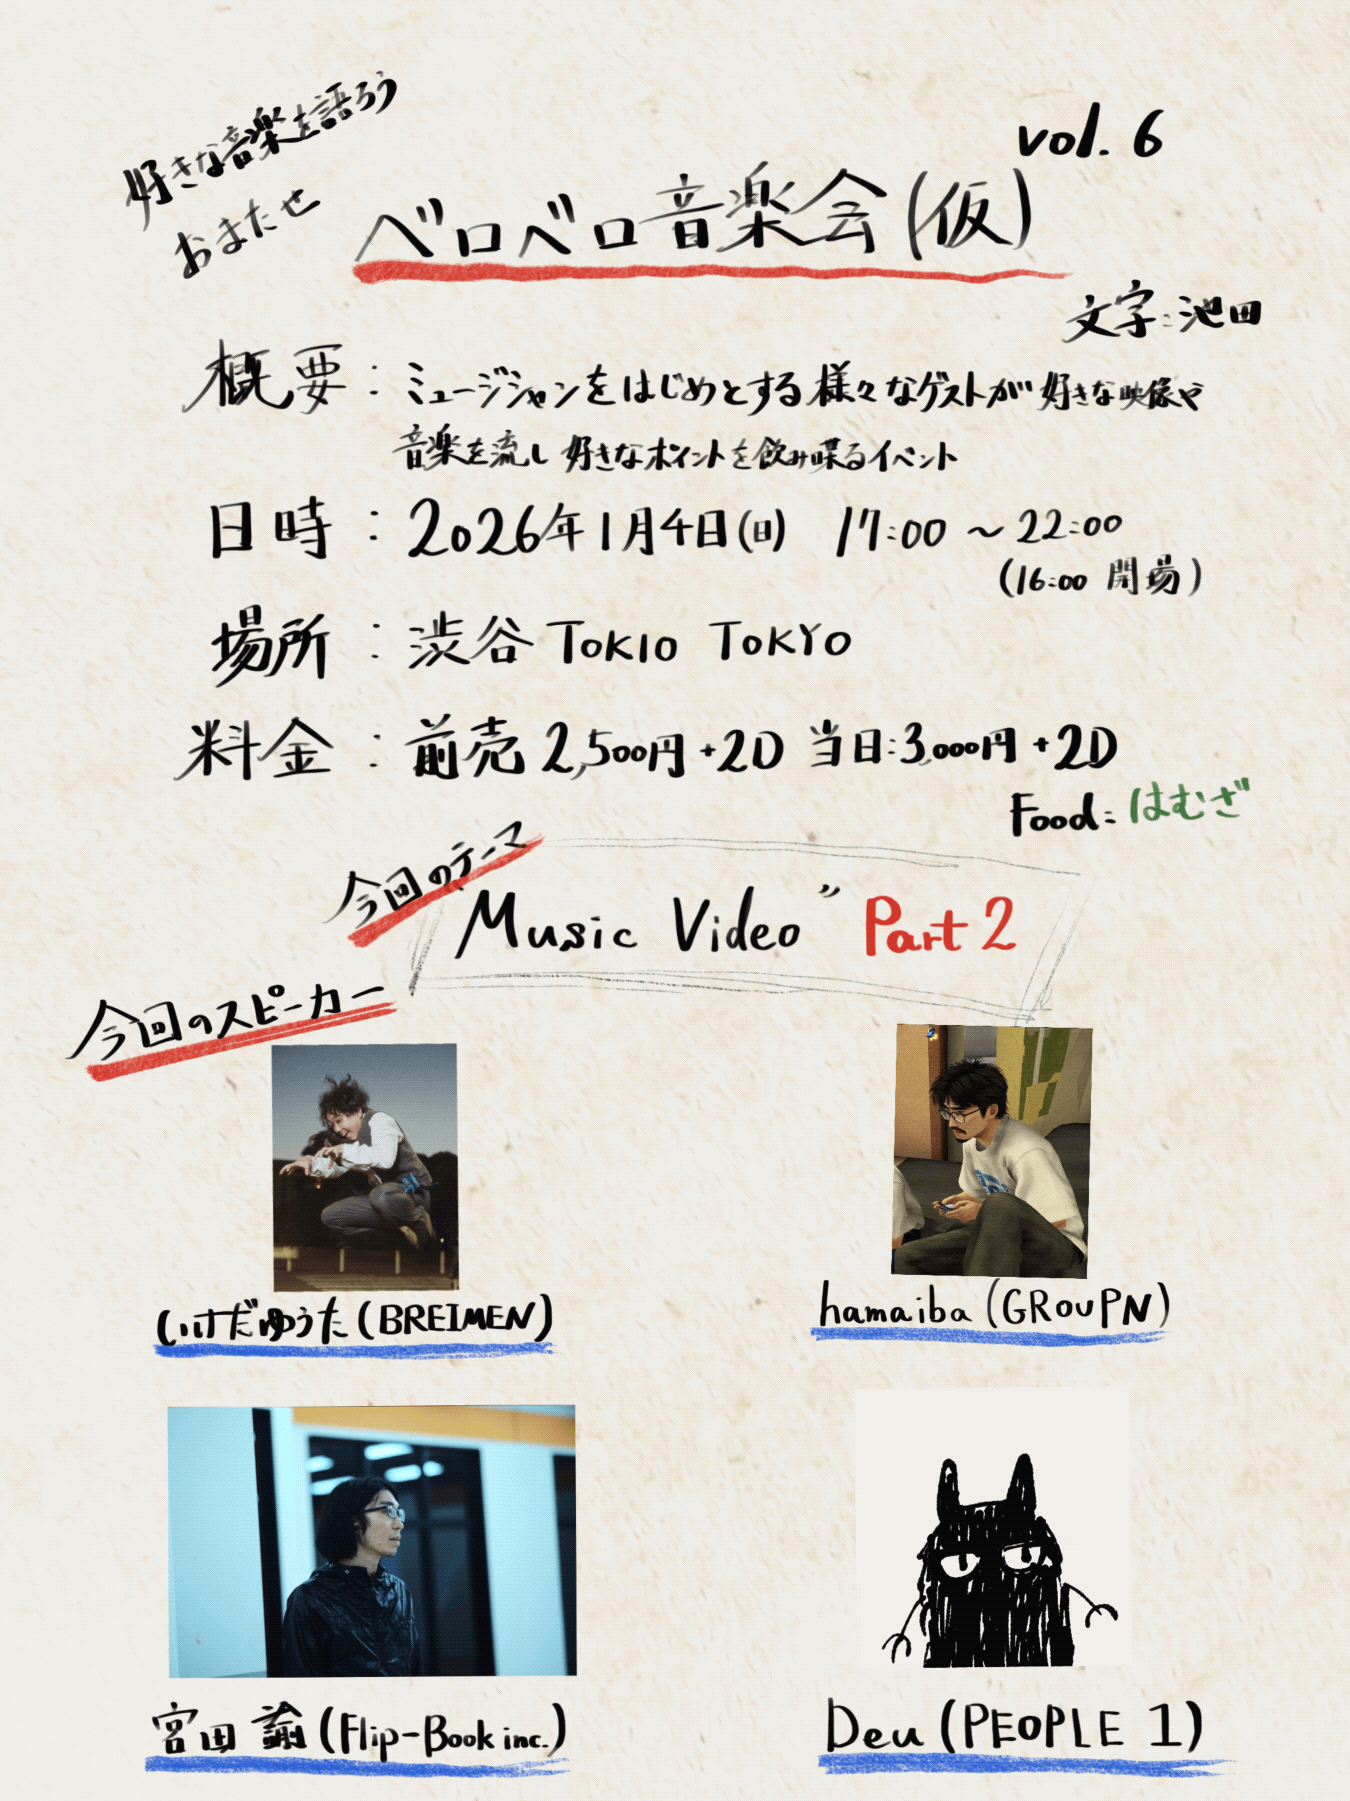 好きな音楽を語ろう
おまたせ
vol. 6
ベロベロ音楽会(仮)
文字:池田
概要:ミュージシャンをはじめとする様々なゲストが好きな映像や
音楽を流し 好きなポイントを飲み喋るイベント
日時:2026年1月4日(日) 17:00 〜 22:00
(16:00 開場)
場所:渋谷 TOKIO TOKYO
料金:前売 2,500円+2D 当日:3,000円+2D
Food: はむざ
今回のテーマ
Music Video" Part 2
今回のスピーカー
いけだゆうた (BREIMEN)
hamaiba (GROUPN)
宮田 諭 (Flip-Book inc.)
Deu (PEOPLE 1)